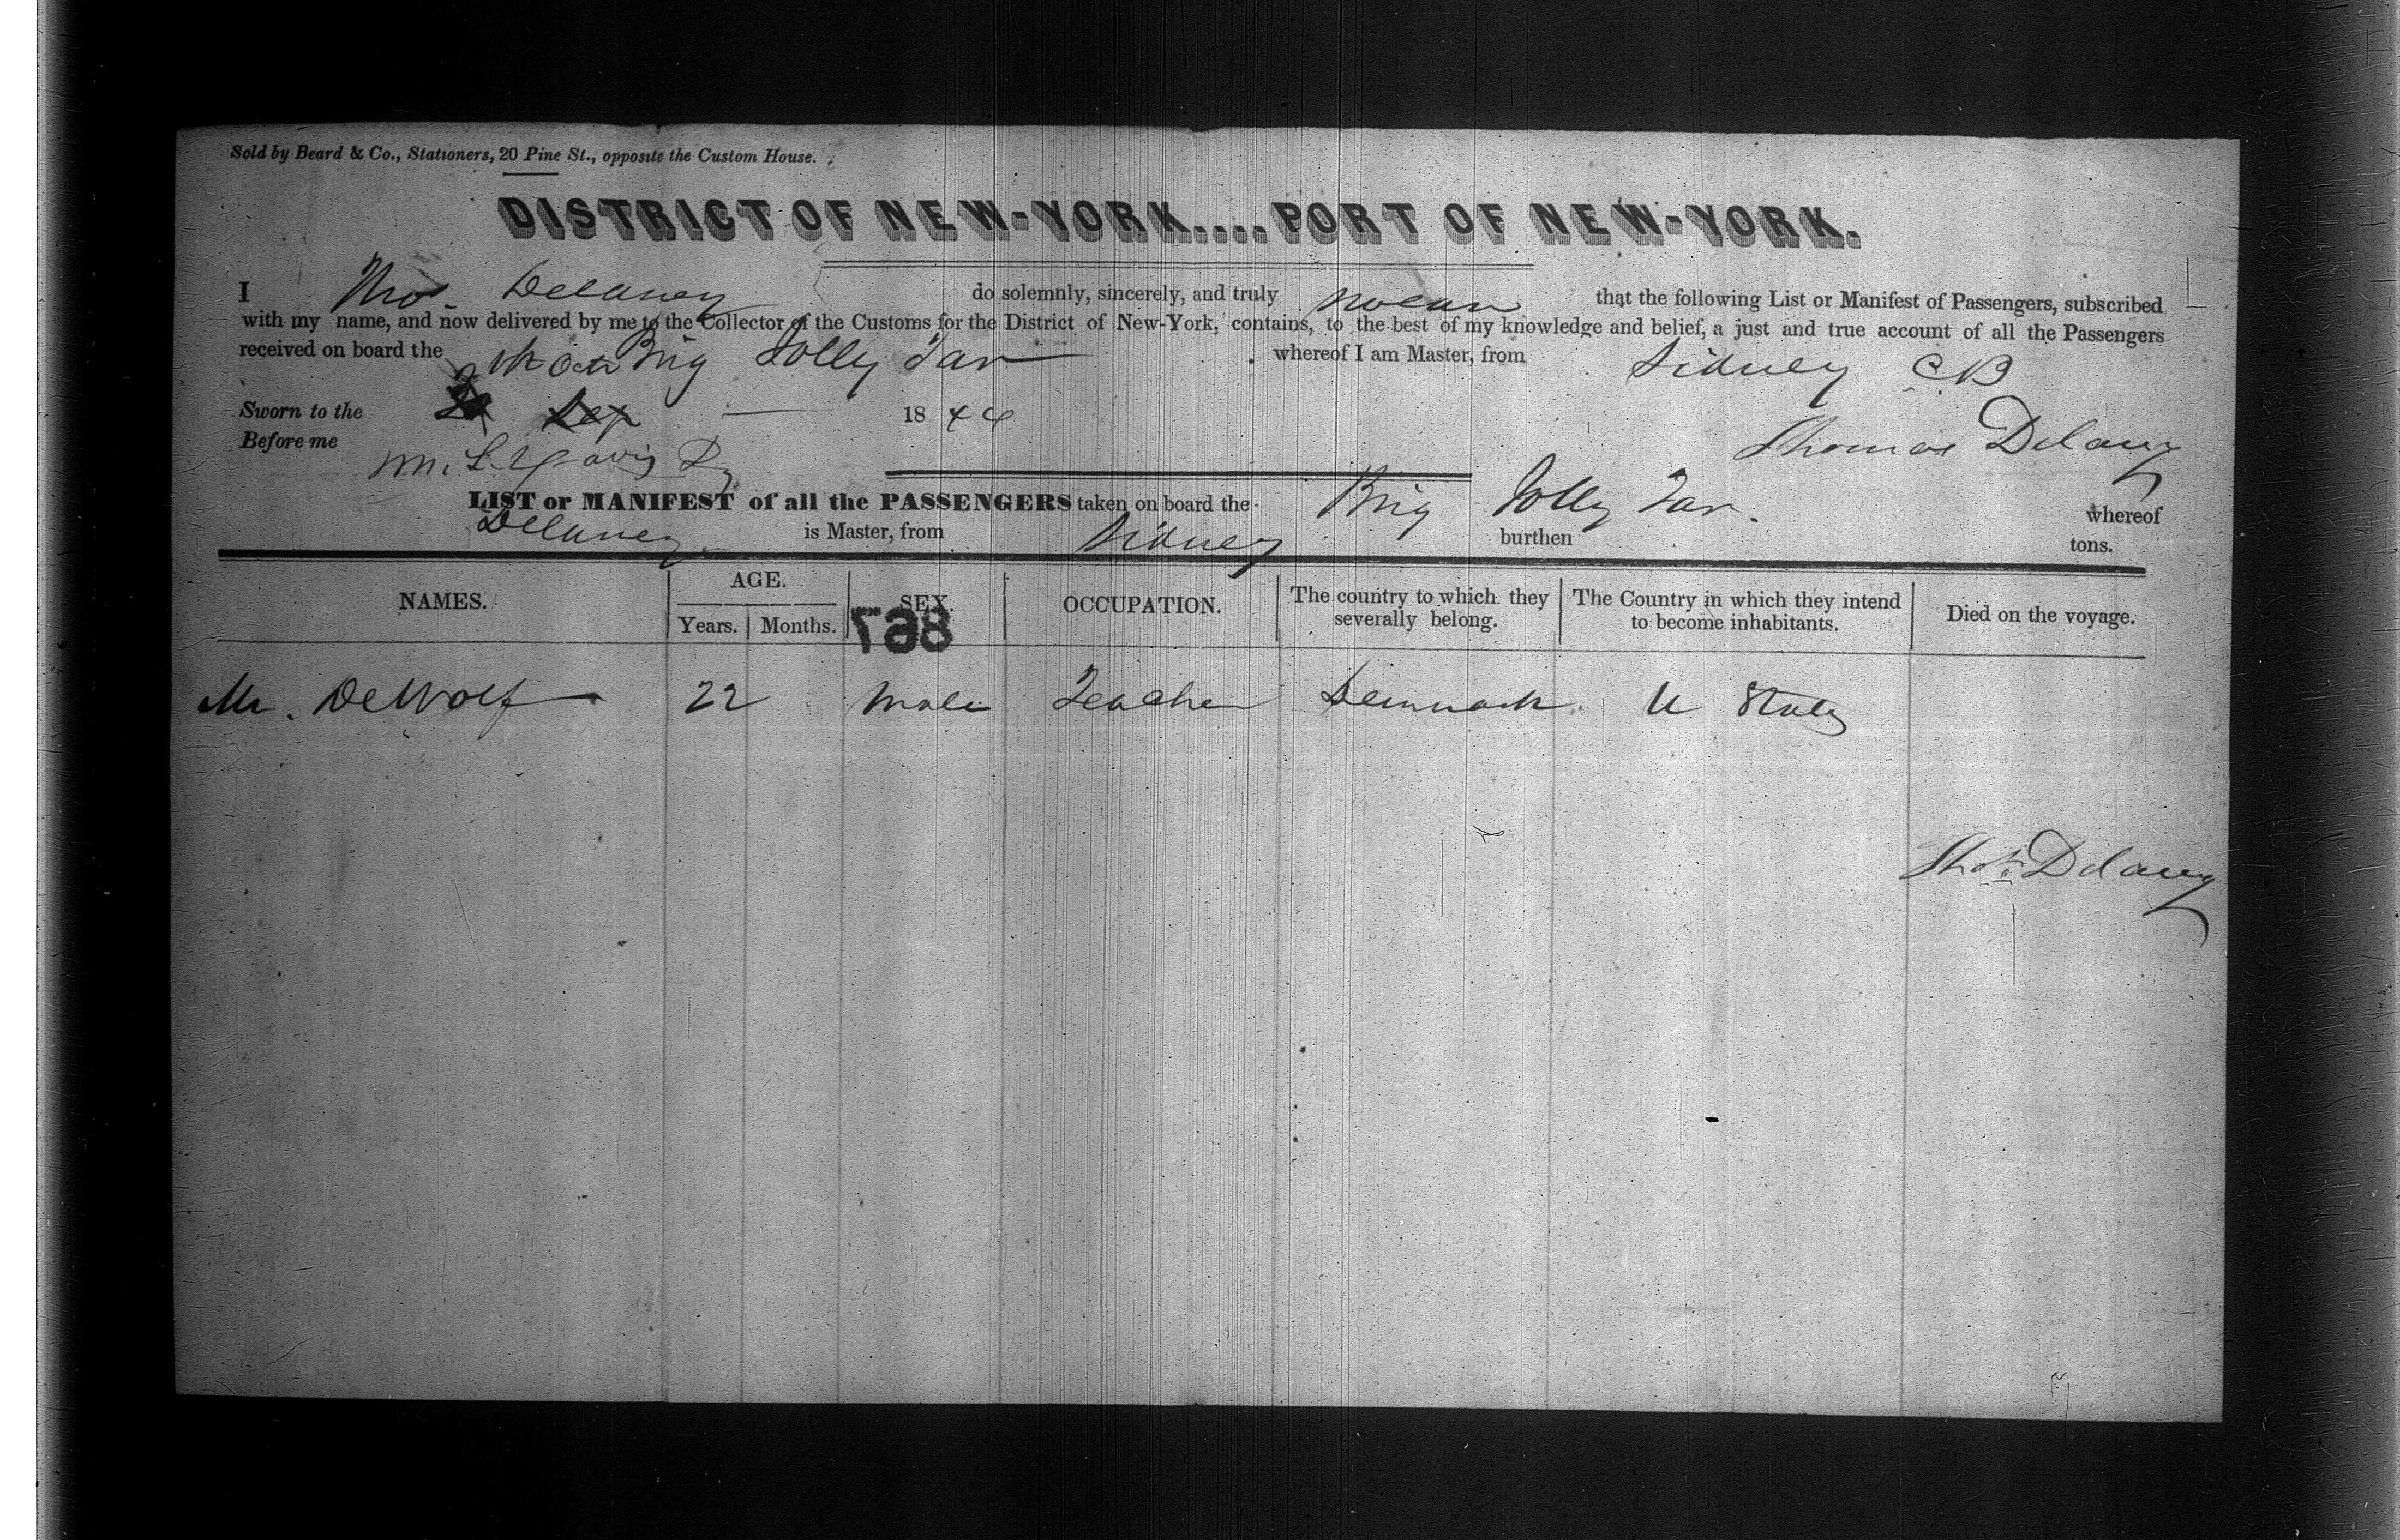 Sold by Beard & Co., Stationers, 20 Pine St., opposite the Custom House.
DISTRICT OF NEW-YORK....PORT OF NEW-YORK.
I Thos. Delaney do solemnly, sincerely, and truly swear that the following List or Manifest of Passengers, subscribed
with my name, and now delivered by me to the Collector of the Customs for the District of New-York, contains, to the best of my knowledge and belief, a just and true account of all the Passengers
received on board the Brig Jolly Tar whereof I am Master, from Sidney CB
Sworn to the 1844
Thomas Delany
Before me
LIST or MANIFEST of all the PASSENGERS taken on board the Brig Jolly Tar. whereof
Delaney is Master, from Sidney burthen tons.
NAMES. AGE. SEX. OCCUPATION. The country to which they severally belong. The Country in which they intend to become inhabitants. Died on the voyage.
Years. Months.
867
Mr. DeWolf 22 Male Teacher Denmark U States
Thos. Delany